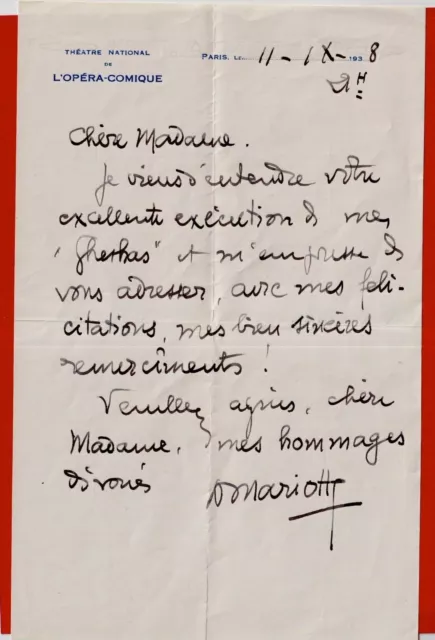 THÉATRE NATIONAL
DE
L'OPÉRA-COMIQUE
PARIS, LE 11-IX-1938
21H
Chère Madame.
Je viens d'entendre votre
excellente exécution de mes
"Gheshas" et m'empresse de
vous adresser, avec mes féli-
citations, mes bien sincères
remerciments !
Veuillez agréer, chère
Madame, mes hommages
dévoués
A Mariotte